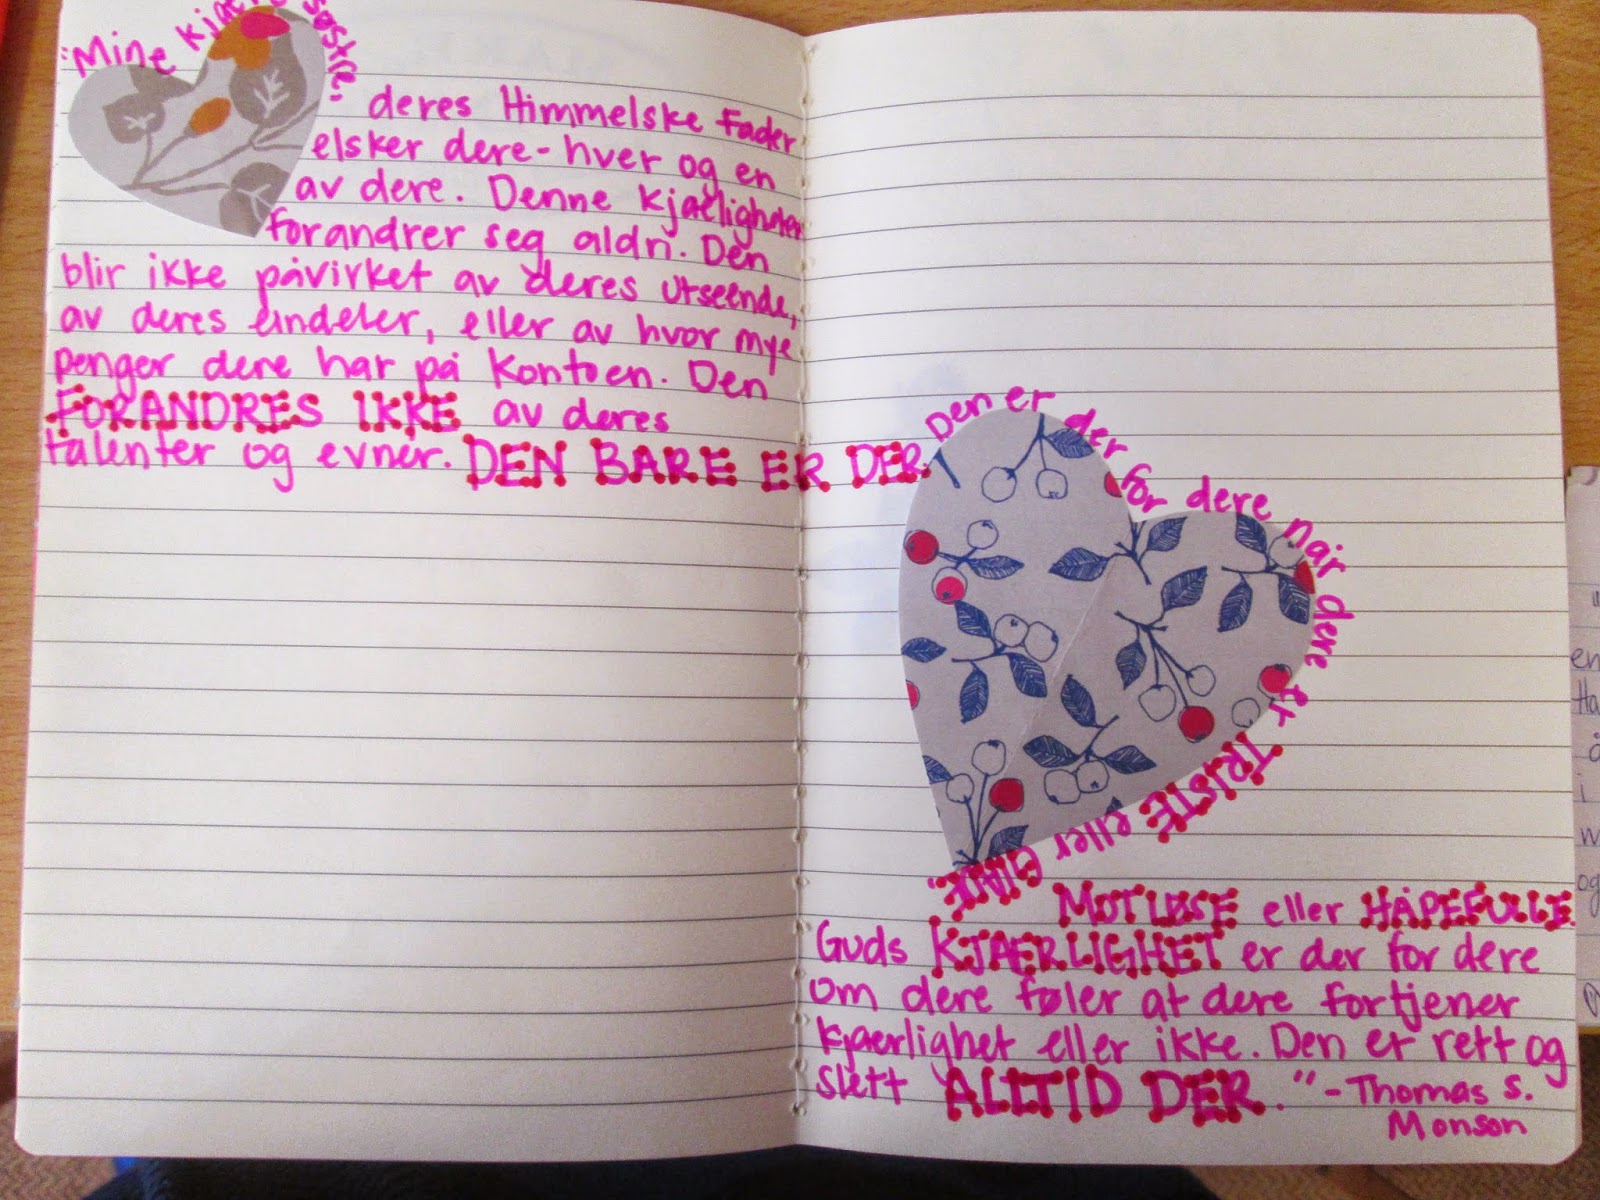 "Mine kjære søstre,
deres Himmelske Fader
elsker dere - hver og en
av dere. Denne kjærligheten
forandrer seg aldri. Den
blir ikke påvirket av deres utseende,
av deres eindeler, eller av hvor mye
penger dere har på kontoen. Den
FORANDRES IKKE av deres
talenter og evner. DEN BARE ER DER.
Den er der for dere når dere er TRISTE eller GLADE.
MOTLØSE eller HÅPEFULLE
Guds KJÆRLIGHET er der for dere
om dere føler at dere fortjener
kjærlighet eller ikke. Den er rett og
slett ALLTID DER." - Thomas S.
Monson
en
Ha
å
i
og